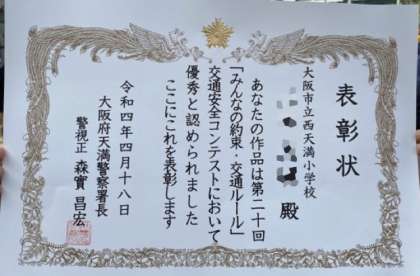 表彰状
大阪市立西天満小学校
殿
あなたの作品は第二十回
「みんなの約束・交通ルール」
交通安全コンテストにおいて
優秀と認められました
ここにこれを表彰します
令和四年四月十八日
大阪府天満警察署長
警視正 森實 昌宏